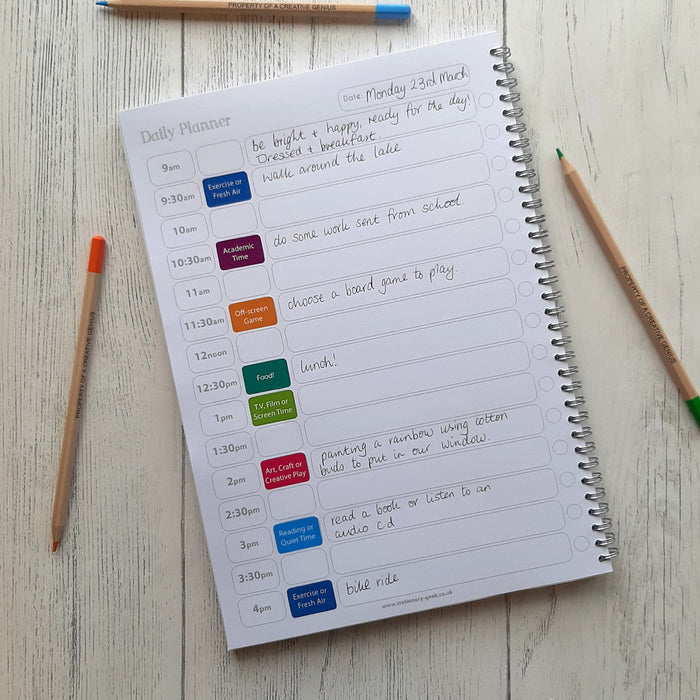 PROPERTY OF A CREATIVE GENIUS
Daily Planner
Date: Monday 23rd March
9am
be bright + happy, ready for the day!
Dressed + breakfast.
9:30am
Exercise or
Fresh Air
walk around the lake
10am
10:30am
Academic
Time
do some work sent from school.
11am
11:30am
Off-screen
Game
choose a board game to play.
12noon
12:30pm
Food!
lunch!
1pm
T.V, Film or
Screen Time
1:30pm
2pm
Art, Craft or
Creative Play
painting a rainbow using cotton
buds to put in our window.
2:30pm
3pm
Reading or
Quiet Time
read a book or listen to an
audio cd
3:30pm
4pm
Exercise or
Fresh Air
bike ride
www.stationery-geek.co.uk
PROPERTY OF A CREATIVE GENIUS
PROPERTY OF A CREATIVE GENIUS